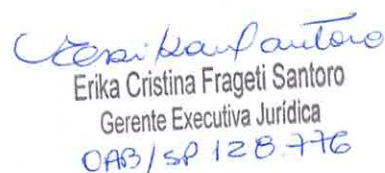 Erika Santoro
Erika Cristina Frageti Santoro
Gerente Executiva Jurídica
OAB/SP 128.776